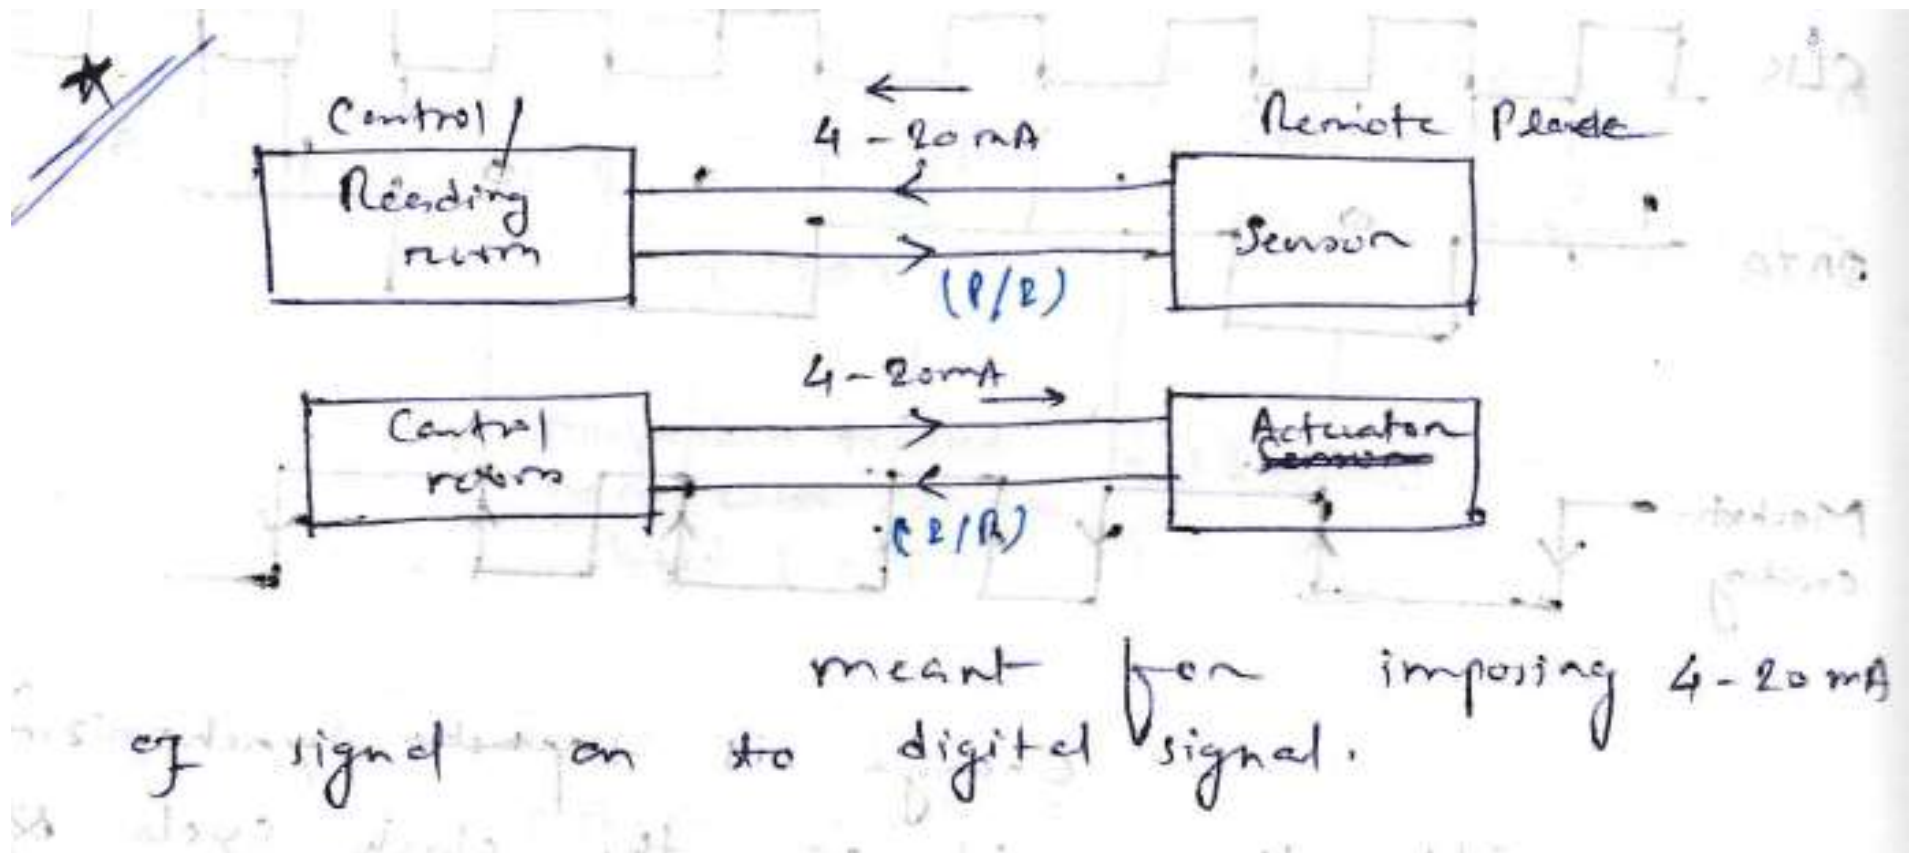 Control /
Reading
room
4 - 20 mA
Remote Place
Sensor
4 - 20mA
Control
room
Actuator
meant for imposing 4 - 20 mA
of signal on to digital signal.